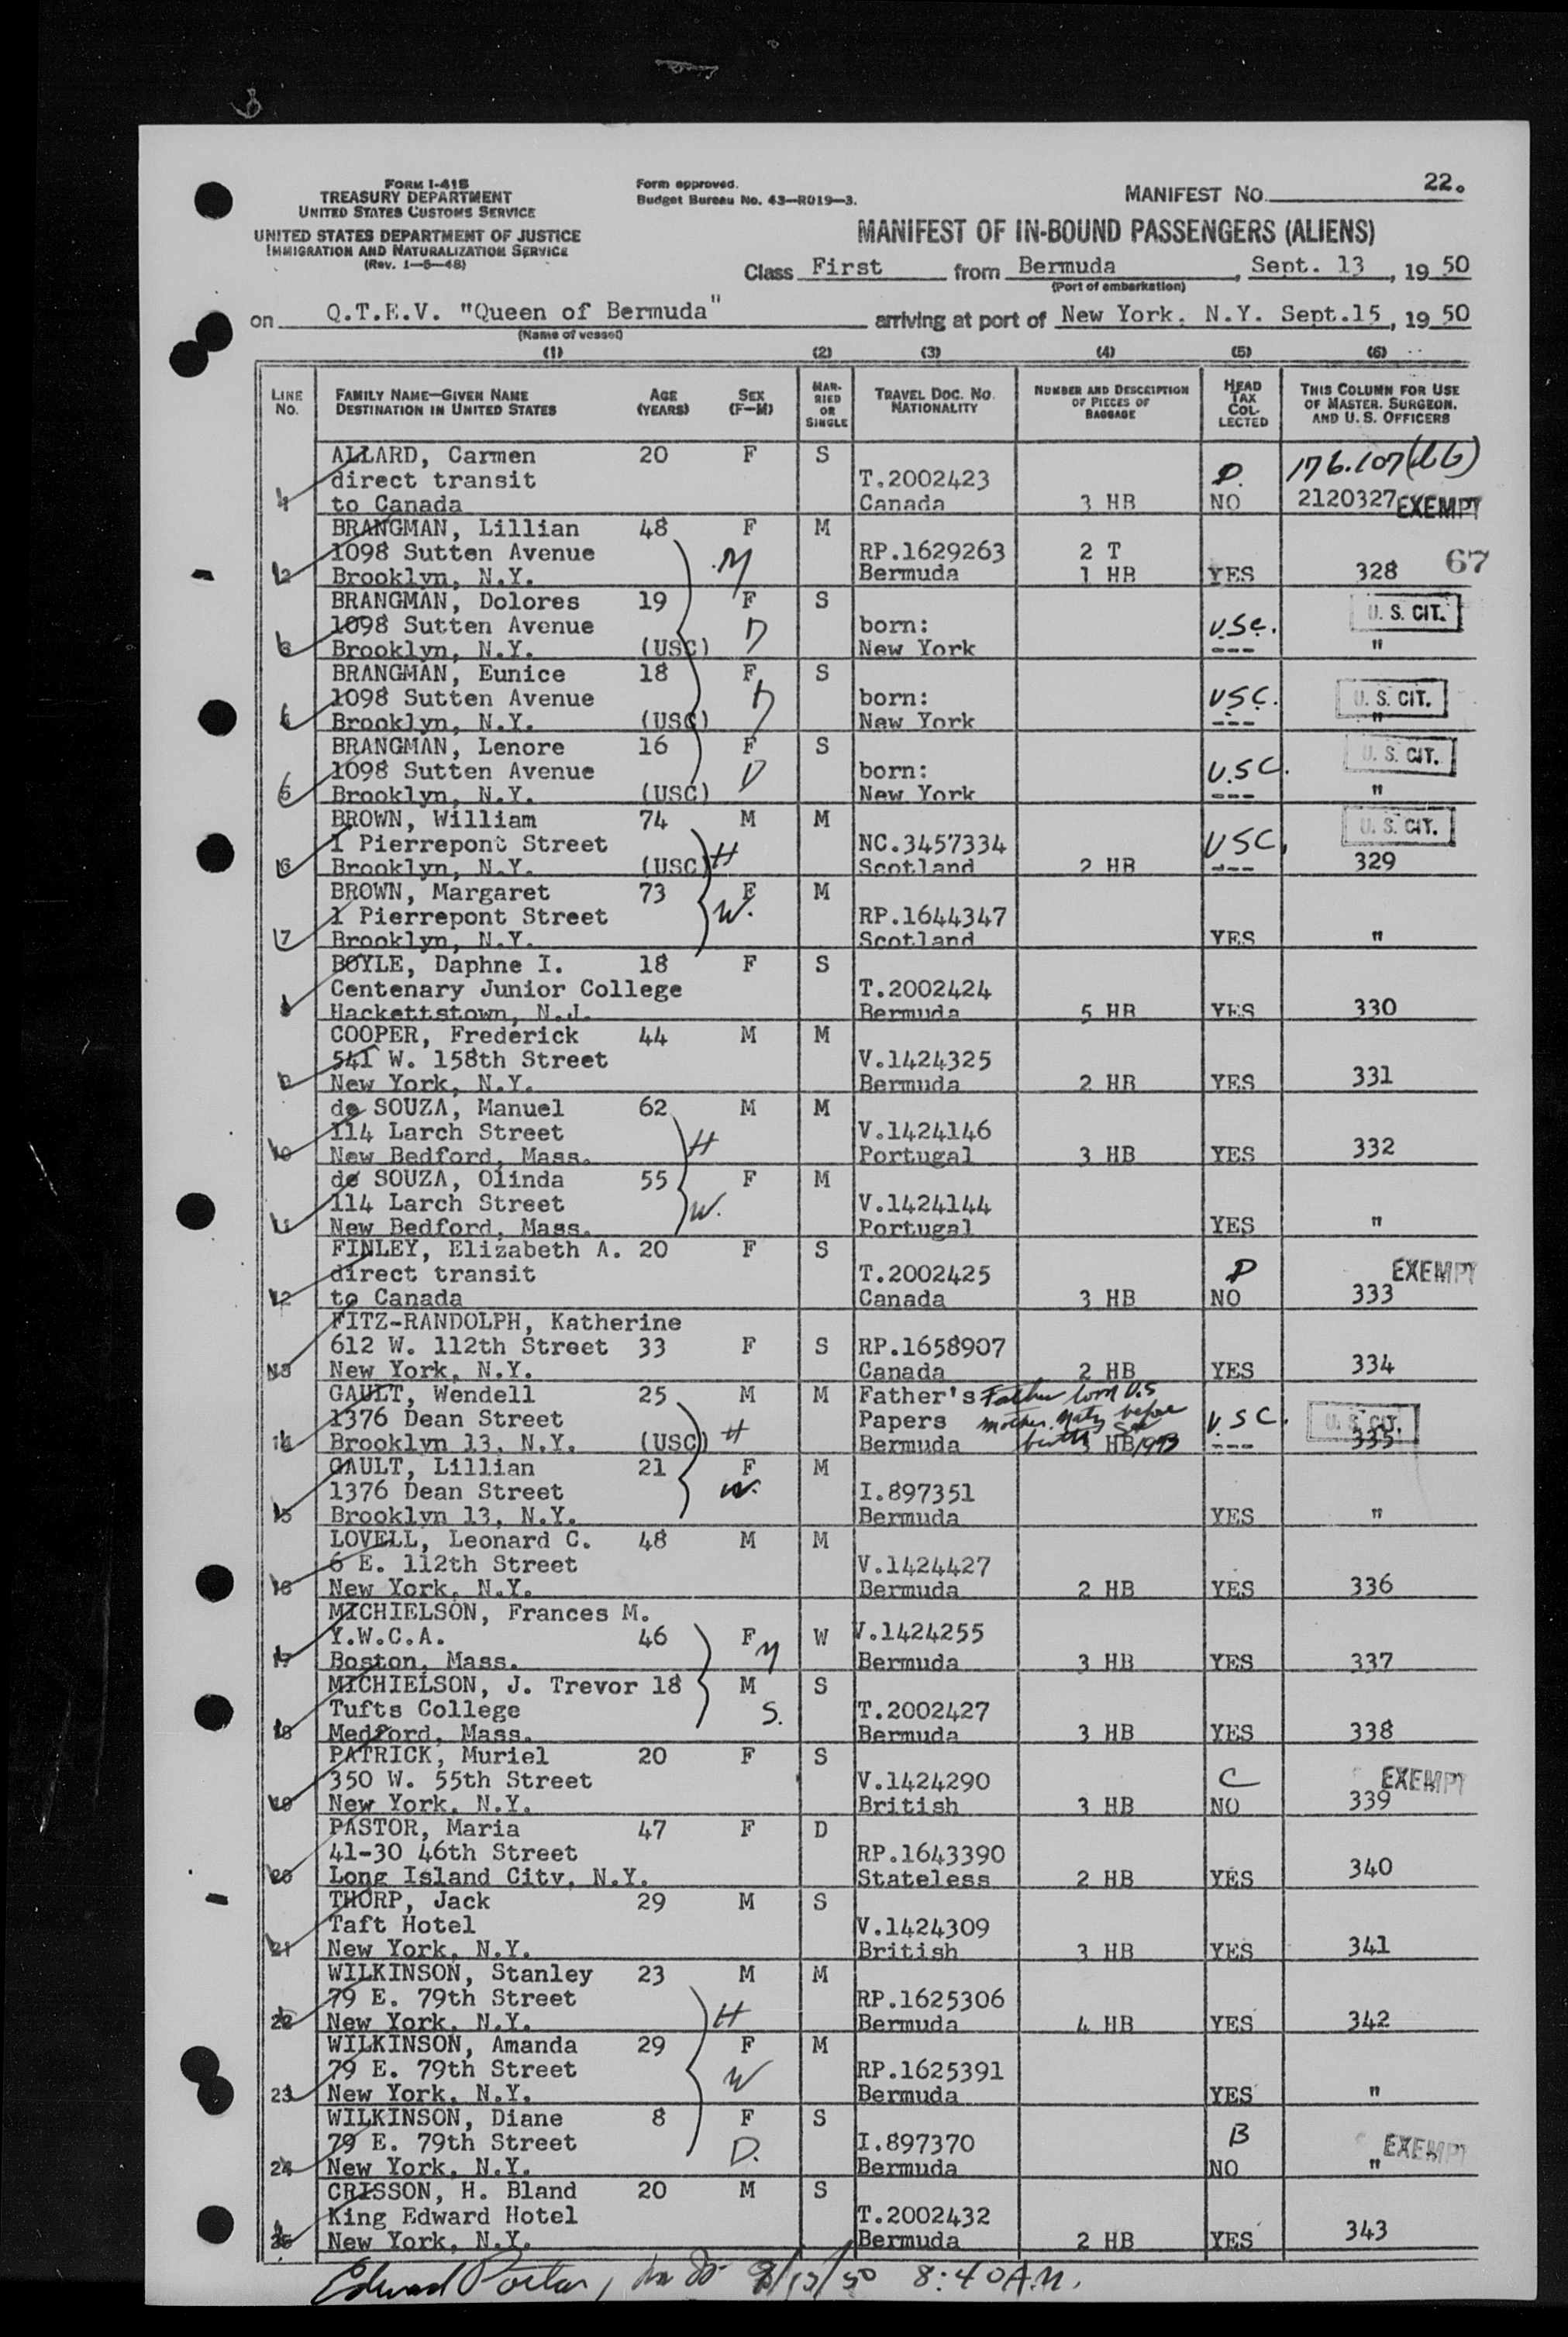 FORM I-418
TREASURY DEPARTMENT
UNITED STATES CUSTOMS SERVICE
UNITED STATES DEPARTMENT OF JUSTICE
IMMIGRATION AND NATURALIZATION SERVICE
(Rev. 1—5—48)
Form approved.
Budget Bureau No. 43—R019—3.
MANIFEST NO. 22.
MANIFEST OF IN-BOUND PASSENGERS (ALIENS)
Class First from Bermuda, Sept. 13, 19 50
(Port of embarkation)
on Q.T.E.V. "Queen of Bermuda" arriving at port of New York, N.Y. Sept.15, 19 50
(Name of vessel)
(1) (2) (3) (4) (5) (6)
LINE NO. FAMILY NAME—GIVEN NAME DESTINATION IN UNITED STATES AGE (YEARS) SEX (F—M) MARRIED OR SINGLE TRAVEL DOC. NO. NATIONALITY NUMBER AND DESCRIPTION OF PIECES OF BAGGAGE HEAD TAX COLLECTED THIS COLUMN FOR USE OF MASTER, SURGEON, AND U. S. OFFICERS
ALLARD, Carmen 20 F S 176.107
direct transit T.2002423 D.
1 to Canada Canada 3 HB NO 2120327 EXEMPT
BRANGMAN, Lillian 48 F M
1098 Sutten Avenue M RP.1629263 2 T 67
2 Brooklyn, N.Y. Bermuda 1 HB YES 328
BRANGMAN, Dolores 19 F S U. S. CIT.
1098 Sutten Avenue D born: U.S.C.
3 Brooklyn, N.Y. (USC) New York --- "
BRANGMAN, Eunice 18 F S
1098 Sutten Avenue D born: U.S.C. U. S. CIT.
4 Brooklyn, N.Y. (USC) New York --- "
BRANGMAN, Lenore 16 F S U. S. CIT.
1098 Sutten Avenue D born: U.S.C.
5 Brooklyn, N.Y. (USC) New York --- "
BROWN, William 74 M M U. S. CIT.
1 Pierrepont Street NC.3457334 USC.
6 Brooklyn, N.Y. (USC) H Scotland 2 HB --- 329
BROWN, Margaret 73 F M
1 Pierrepont Street W. RP.1644347
7 Brooklyn, N.Y. Scotland YES "
BOYLE, Daphne I. 18 F S
Centenary Junior College T.2002424
8 Hackettstown, N.J. Bermuda 5 HB YES 330
COOPER, Frederick 44 M M
541 W. 158th Street V.1424325
9 New York, N.Y. Bermuda 2 HB YES 331
de SOUZA, Manuel 62 M M
114 Larch Street H V.1424146
10 New Bedford, Mass. Portugal 3 HB YES 332
de SOUZA, Olinda 55 F M
114 Larch Street W. V.1424144
11 New Bedford, Mass. Portugal YES "
FINLEY, Elizabeth A. 20 F S
direct transit T.2002425 D EXEMPT
12 to Canada Canada 3 HB NO 333
FITZ-RANDOLPH, Katherine
612 W. 112th Street 33 F S RP.1658907
13 New York, N.Y. Canada 2 HB YES 334
GAULT, Wendell 25 M M Father's Father born U.S
1376 Dean Street Papers mother before U.S.C. U. S. CIT.
14 Brooklyn 13, N.Y. (USC) H Bermuda birth HB --- 335
GAULT, Lillian 21 F M
1376 Dean Street W. I.897351
15 Brooklyn 13, N.Y. Bermuda YES "
LOVELL, Leonard C. 48 M M
6 E. 112th Street V.1424427
16 New York, N.Y. Bermuda 2 HB YES 336
MICHIELSON, Frances M.
Y.W.C.A. 46 F M W V.1424255
17 Boston, Mass. Bermuda 3 HB YES 337
MICHIELSON, J. Trevor 18 M S
Tufts College S. T.2002427
18 Medford, Mass. Bermuda 3 HB YES 338
PATRICK, Muriel 20 F S
350 W. 55th Street V.1424290 C EXEMPT
19 New York, N.Y. British 3 HB NO 339
PASTOR, Maria 47 F D
41-30 46th Street RP.1643390
20 Long Island City, N.Y. Stateless 2 HB YES 340
THORP, Jack 29 M S
Taft Hotel V.1424309
21 New York, N.Y. British 3 HB YES 341
WILKINSON, Stanley 23 M M
79 E. 79th Street H RP.1625306
22 New York, N.Y. Bermuda 4 HB YES 342
WILKINSON, Amanda 29 F M
79 E. 79th Street W RP.1625391
23 New York, N.Y. Bermuda YES "
WILKINSON, Diane 8 F S
79 E. 79th Street D. I.897370 B EXEMPT
24 New York, N.Y. Bermuda NO "
CRISSON, H. Bland 20 M S
King Edward Hotel T.2002432
25 New York, N.Y. Bermuda 2 HB YES 343
Edward Porter, 9/15/50 8:40 A.M.